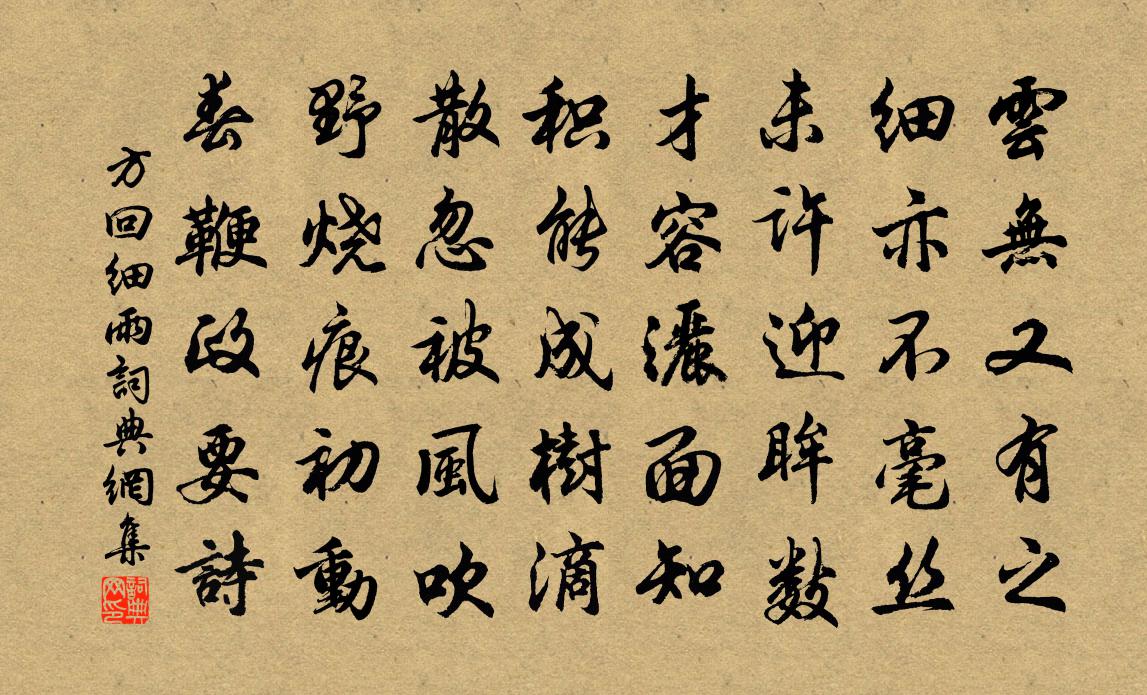 雲無又有之
細亦不毫丝
未許迎眸數
才容灑面知
积能成樹滴
散忽被風吹
野烧痕初動
春鞭政要詩
方回細雨詞典網集
詞典网印